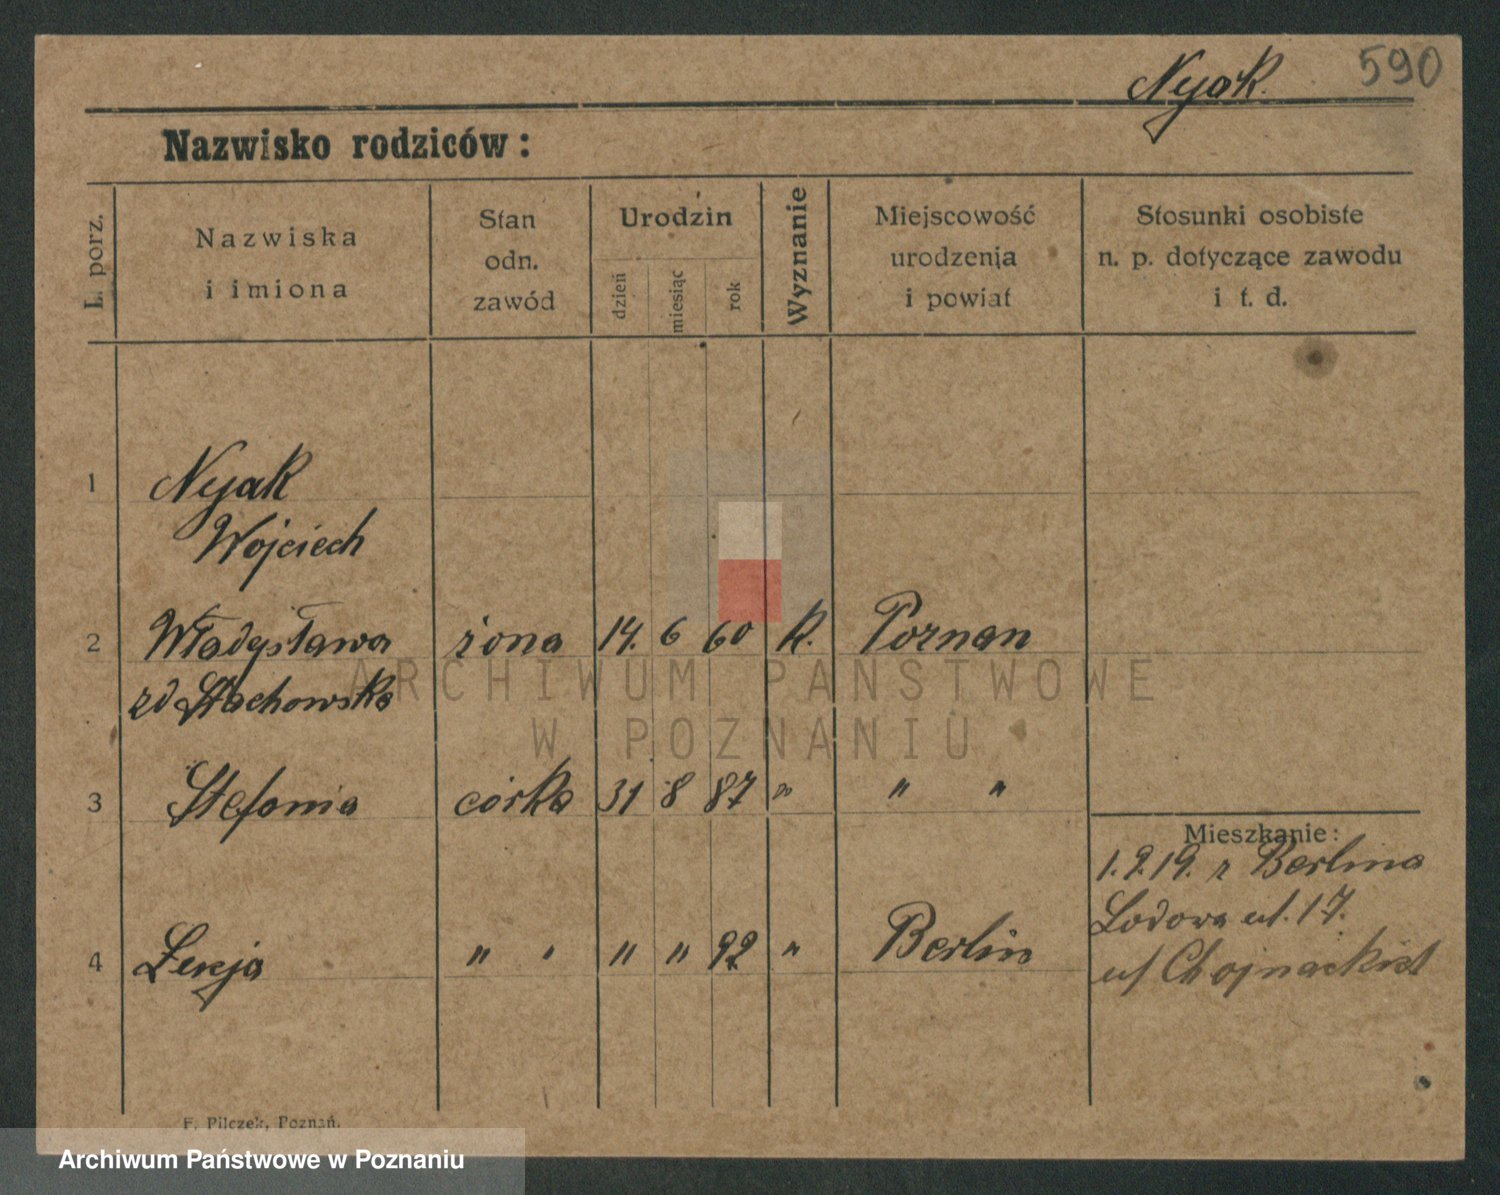 Nyak. 590
Nazwisko rodziców:
L. porz.
Nazwiska
i imiona
Stan
odn.
zawód
Urodzin
dzień
miesiąc
rok
Wyznanie
Miejscowość
urodzenia
i powiat
Stosunki osobiste
n. p. dotyczące zawodu
i t. d.
1 Nyak
Wojciech
2 Władysława żona 14. 6 60 k. Poznan
zd Stachowska
3 Stefonia córka 31 8 87 " " "
Mieszkanie:
1.2.19. z Berlina
Lodowa ul. 17.
u/
4 " " " " 92 " Berlin
F. Pilczek, Poznań.
ARCHIWUM PAŃSTWOWE
W POZNANIU
Archiwum Państwowe w Poznaniu